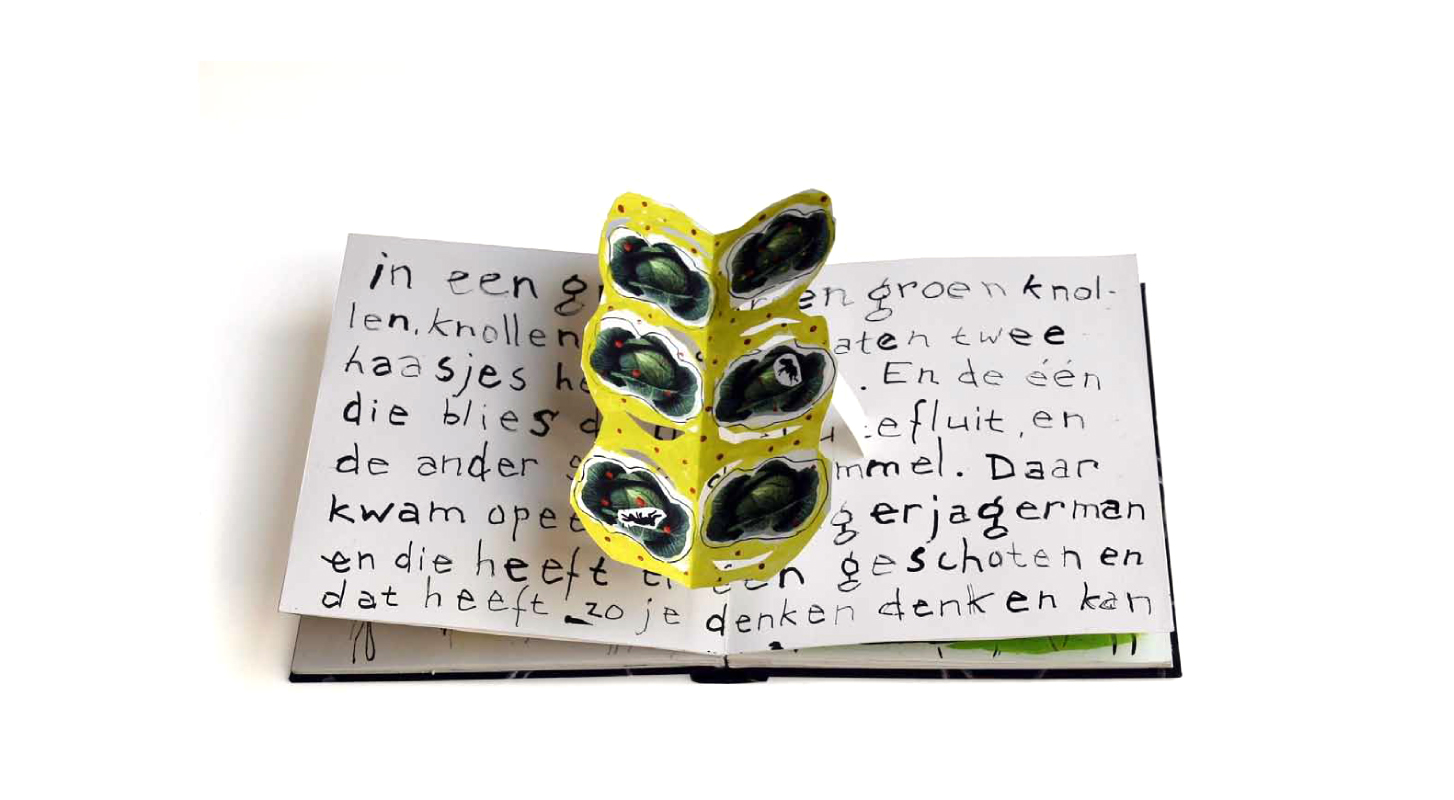 in een groen groen knol-
len, knollen aten twee
haasjes . En de één
die blies d efluit, en
de ander mmel. Daar
kwam opee gerjagerman
en die heeft er een geschoten en
dat heeft zo je denken denken kan